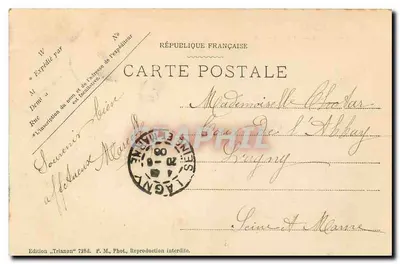 RÉPUBLIQUE FRANÇAISE
CARTE POSTALE
W No
* Expédié par
M
Demt
Rue
* L'inscription du nom et de l'adresse de l'expéditeur
est facultative.
Souvenir bien
affectueux
Mademoiselle
Cour de l'Abbaye
Lagny
Seine et Marne
LAGNY
SEINE ET MARNE
Edition „Trianon" 798d. P. M., Phot., Reproduction interdite.